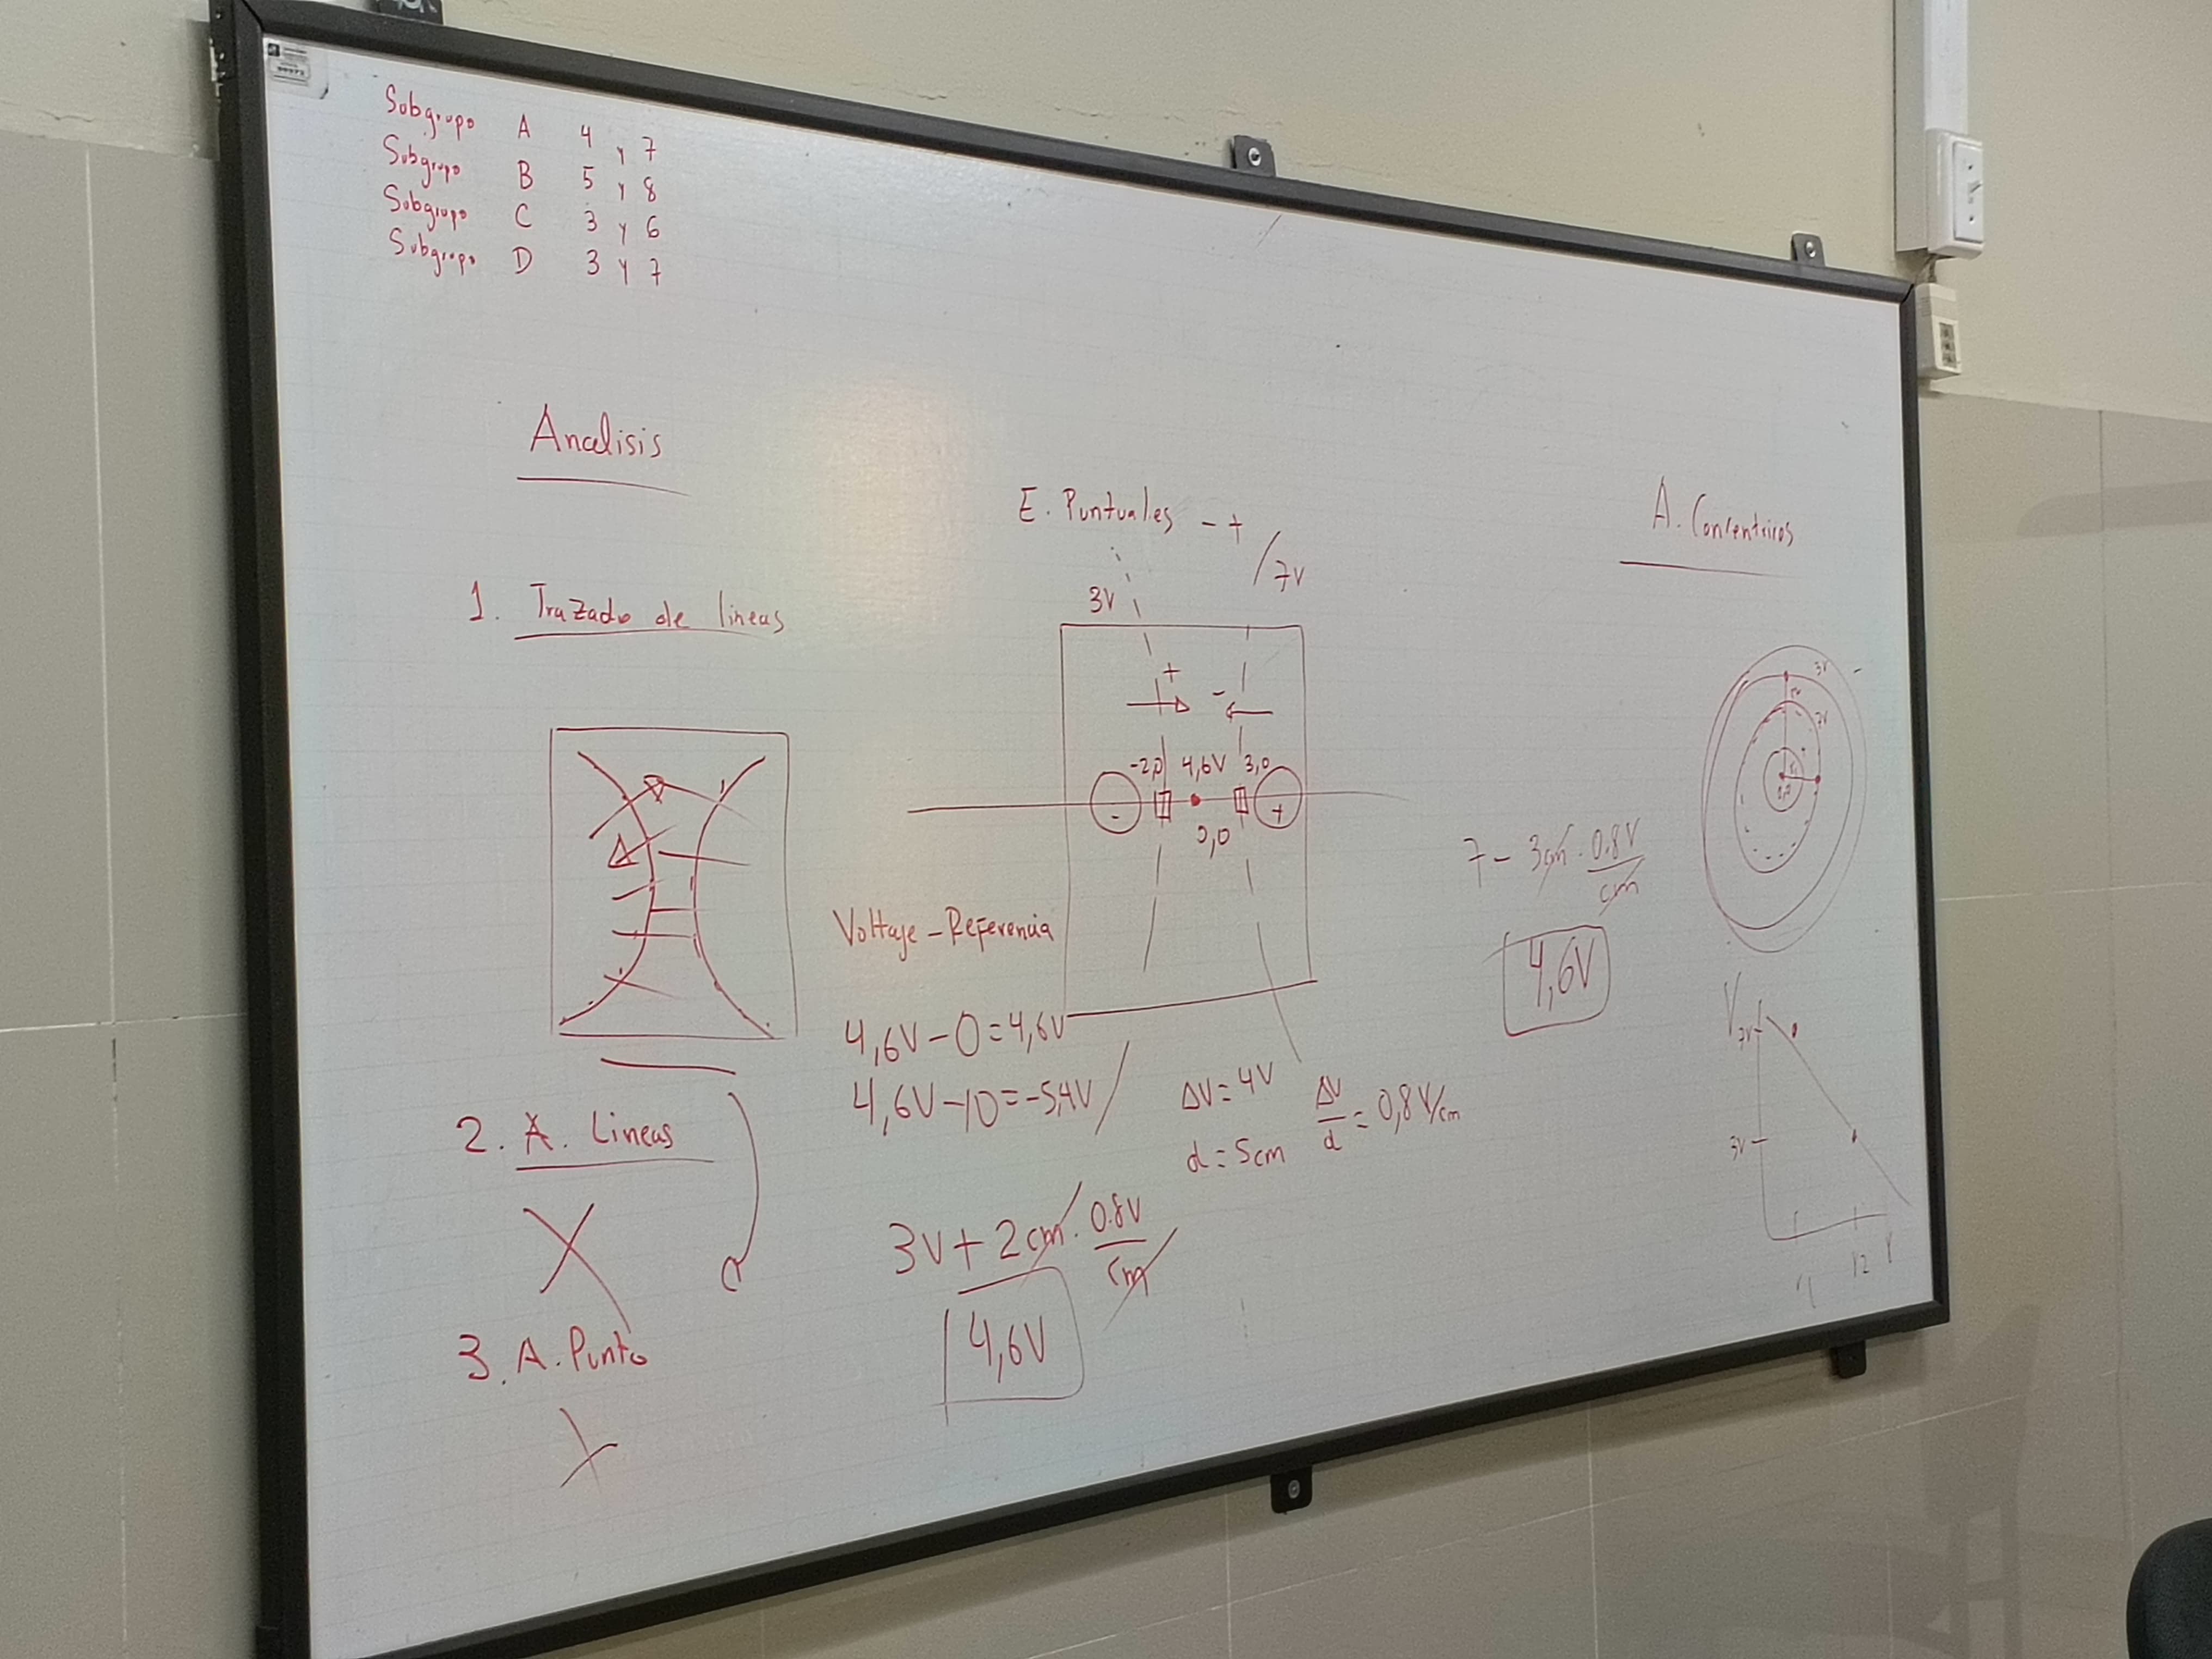 Subgrupo A 4 y 7
Subgrupo B 5 y 8
Subgrupo C 3 y 6
Subgrupo D 3 y 7
Analisis
1. Trazado de lineas
2. A. Lineas
3. A. Punto
E. Puntuales - +
3V
7V
+
-
-2,0 4,6V 3,0
-
+
0,0
Voltaje - Referencia
4,6V - 0 = 4,6V
4,6V - 10 = -5,4V
ΔV = 4V
d = 5cm
ΔV/d = 0,8 V/cm
3V + 2cm · 0.8V/cm
4,6V
7 - 3cm · 0.8V/cm
4,6V
A. Concentricos
3V
-
r2
7V
r1
0,0
V
7V
3V
r1 r2 r